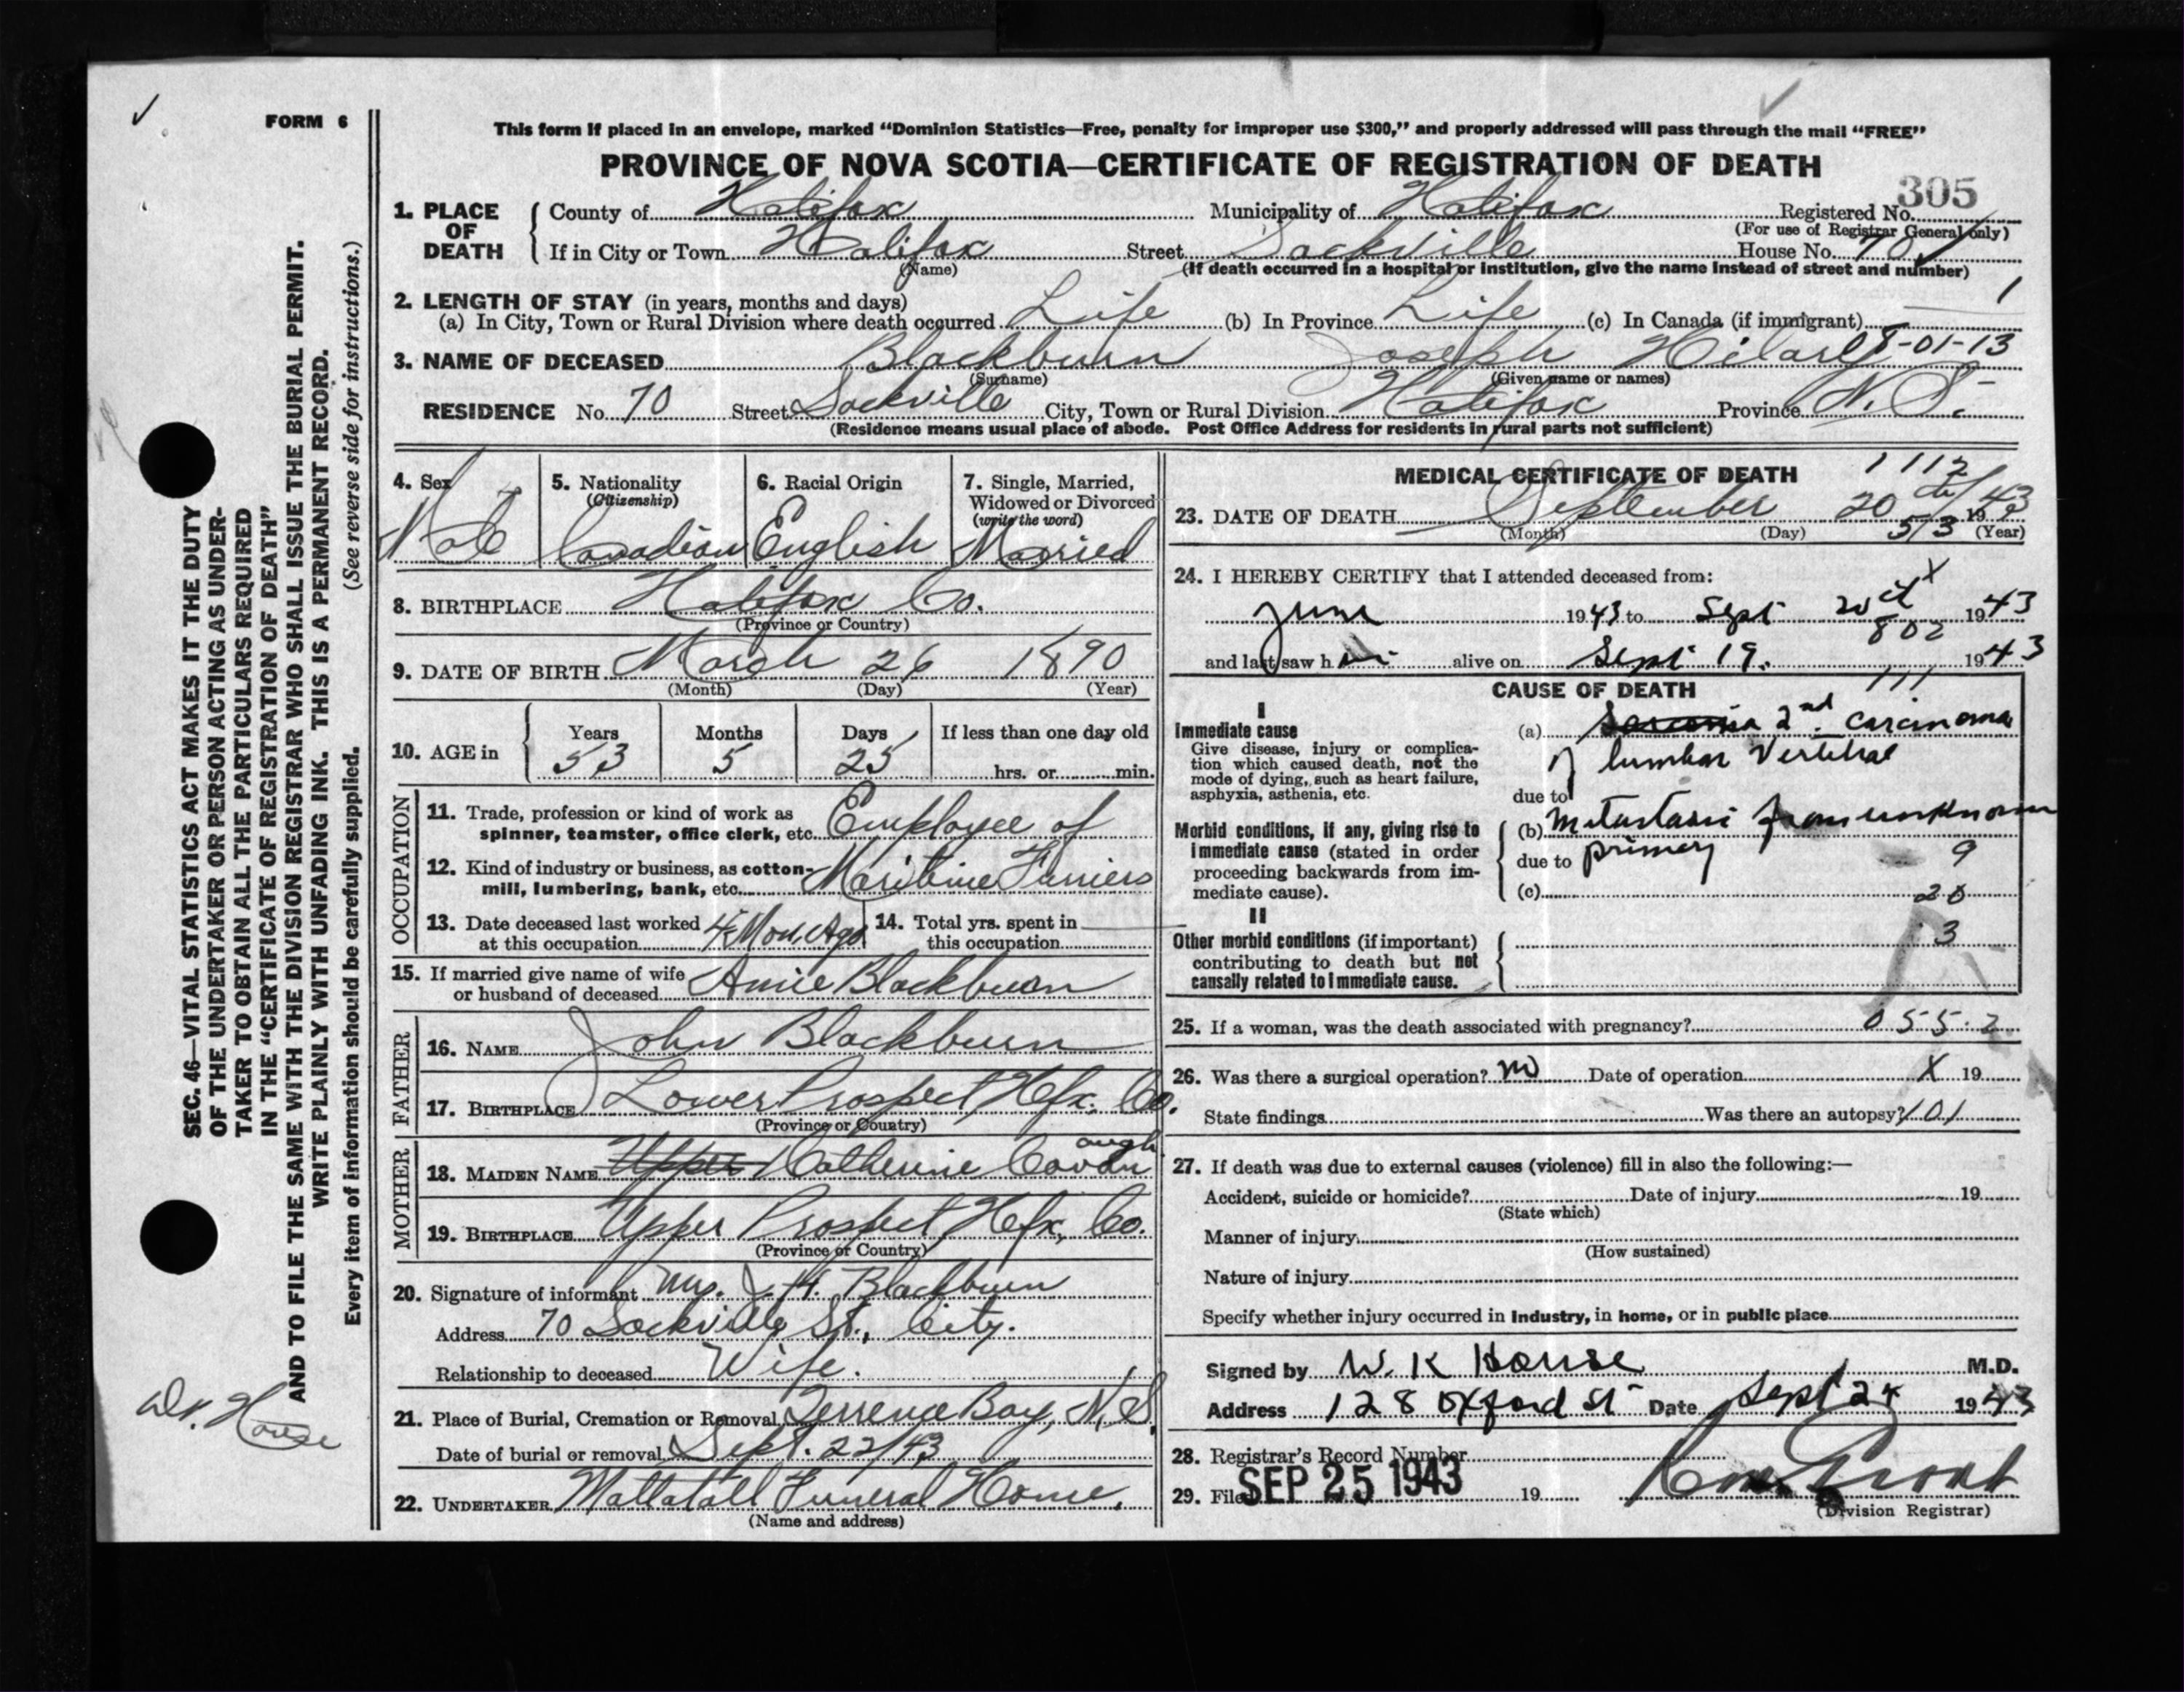 FORM 6
This form if placed in an envelope, marked "Dominion Statistics—Free, penalty for improper use $300," and properly addressed will pass through the mail "FREE"
PROVINCE OF NOVA SCOTIA—CERTIFICATE OF REGISTRATION OF DEATH
305
1. PLACE OF DEATH County of Halifax Municipality of Halifax Registered No.
(For use of Registrar General only)
If in City or Town Halifax Street Sackville House No. 70
(Name) (If death occurred in a hospital or institution, give the name instead of street and number)
2. LENGTH OF STAY (in years, months and days) 1
(a) In City, Town or Rural Division where death occurred Life (b) In Province Life (c) In Canada (if immigrant)
3. NAME OF DECEASED Blackburn Joseph Hilary 08-01-13
(Surname) (Given name or names)
RESIDENCE No. 70 Street Sackville City, Town or Rural Division Halifax Province N.S.
(Residence means usual place of abode. Post Office Address for residents in rural parts not sufficient)
4. Sex
Male
5. Nationality
(Citizenship)
Canadian
6. Racial Origin
English
7. Single, Married,
Widowed or Divorced
(write the word)
Married
8. BIRTHPLACE Halifax Co.
(Province or Country)
9. DATE OF BIRTH March 26 1890
(Month) (Day) (Year)
10. AGE in Years Months Days If less than one day old
53 5 25 hrs. or min.
OCCUPATION
11. Trade, profession or kind of work as
spinner, teamster, office clerk, etc. Employee of
12. Kind of industry or business, as cotton-
mill, lumbering, bank, etc. Maritime Furriers
13. Date deceased last worked
at this occupation 4 Mon. Ago
14. Total yrs. spent in
this occupation
15. If married give name of wife
or husband of deceased Annie Blackburn
FATHER
16. NAME John Blackburn
17. BIRTHPLACE Lower Prospect Hfx. Co.
(Province or Country)
MOTHER
18. MAIDEN NAME Upper Catherine Cavan augh
19. BIRTHPLACE Upper Prospect Hfx. Co.
(Province or Country)
20. Signature of informant Mrs. J. H. Blackburn
Address 70 Sackville St., City.
Relationship to deceased Wife.
21. Place of Burial, Cremation or Removal Terrence Bay, N.S.
Date of burial or removal Sept. 22/43
22. UNDERTAKER Mattatall Funeral Home.
(Name and address)
MEDICAL CERTIFICATE OF DEATH 1112
23. DATE OF DEATH September 20th/43 19
(Month) (Day) 513 (Year)
24. I HEREBY CERTIFY that I attended deceased from: X
June 1943 to Sept 20th 1943
802
and last saw him alive on Sept 19. 1943
CAUSE OF DEATH 111
I
Immediate cause
Give disease, injury or complica-
tion which caused death, not the
mode of dying, such as heart failure,
asphyxia, asthenia, etc.
(a) Sarcoma 2nd. carcinoma
of lumbar Vertebrae
due to
Morbid conditions, if any, giving rise to
immediate cause (stated in order
proceeding backwards from im-
mediate cause).
(b) metastasis from unknown
due to primary 9
(c) 20
II
Other morbid conditions (if important)
contributing to death but not
causally related to immediate cause.
3
25. If a woman, was the death associated with pregnancy? 055.2
26. Was there a surgical operation? no Date of operation X 19
State findings Was there an autopsy? 101
27. If death was due to external causes (violence) fill in also the following:—
Accident, suicide or homicide? Date of injury 19
(State which)
Manner of injury
(How sustained)
Nature of injury
Specify whether injury occurred in industry, in home, or in public place
Signed by W. K House M.D.
Address 128 Oxford St Date Sept 24 1943
28. Registrar's Record Number
29. Filed SEP 25 1943 19
(Division Registrar)
SEC. 46—VITAL STATISTICS ACT MAKES IT THE DUTY
OF THE UNDERTAKER OR PERSON ACTING AS UNDER-
TAKER TO OBTAIN ALL THE PARTICULARS REQUIRED
IN THE "CERTIFICATE OF REGISTRATION OF DEATH"
AND TO FILE THE SAME WITH THE DIVISION REGISTRAR WHO SHALL ISSUE THE BURIAL PERMIT.
WRITE PLAINLY WITH UNFADING INK. THIS IS A PERMANENT RECORD.
Every item of information should be carefully supplied. (See reverse side for instructions.)
Dr. House